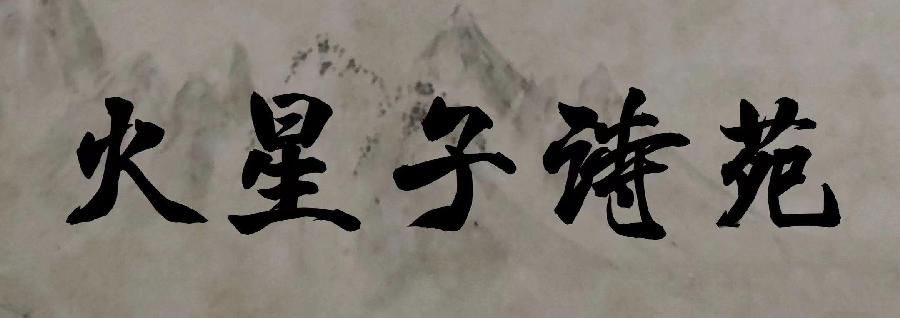 火星子诗苑